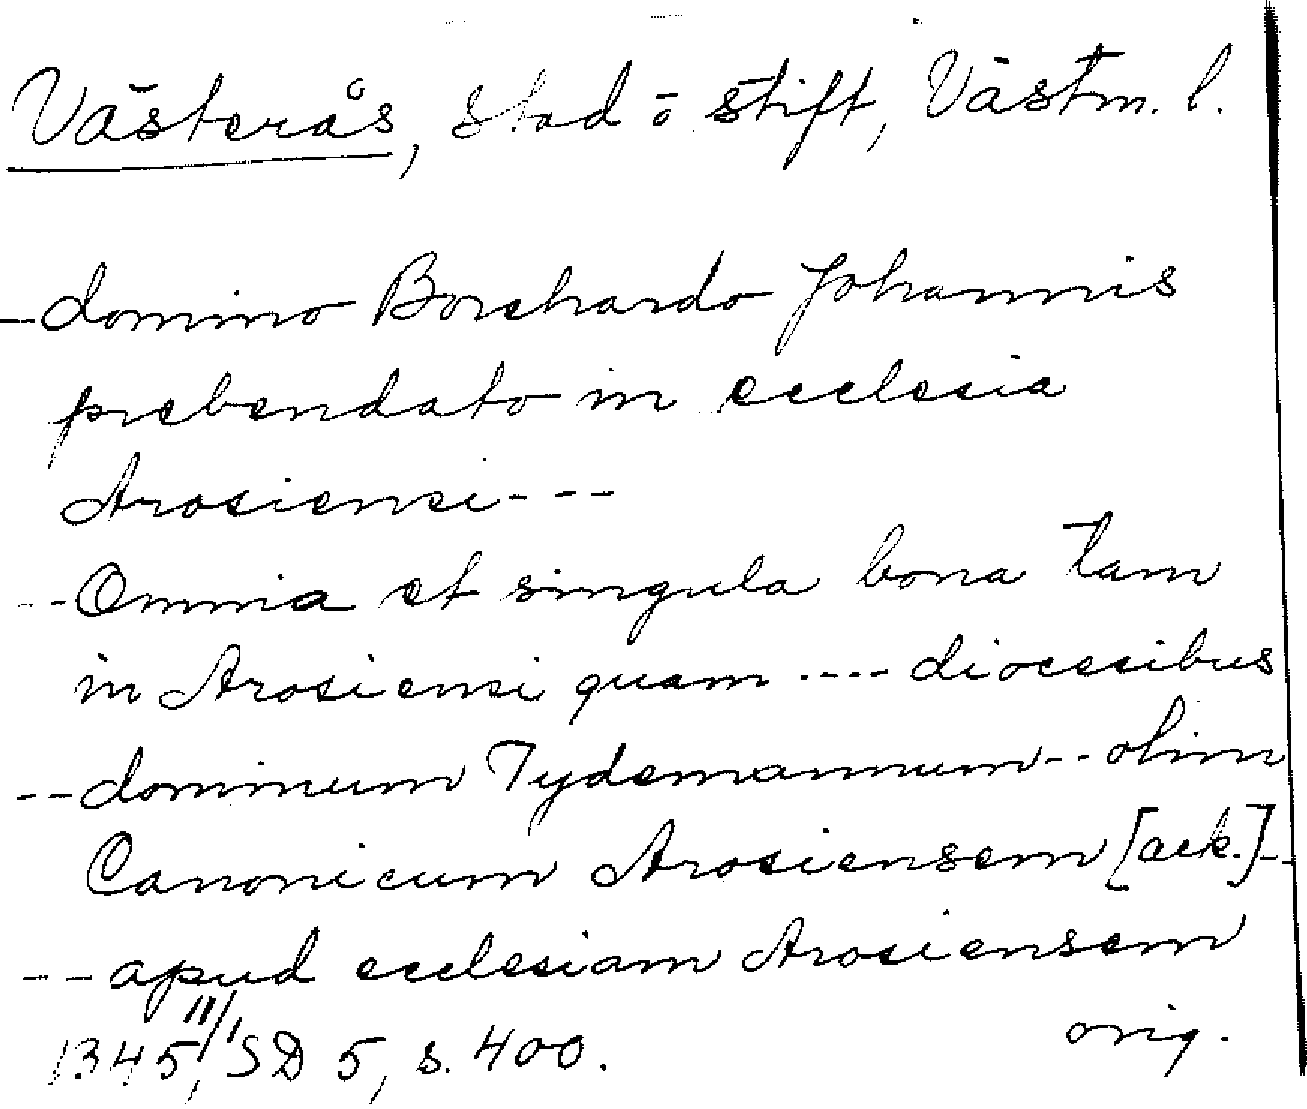 Västerås, stad o stift, Västm. l.
-domino Borchardo Johannis
prebendato in ecclesia
Arosiensi---
--Omnia et singula bona tam
in Arosiensi quam .... diocesibus
--dominum Tydemannum--olim
Canonicum Arosiensem [ack.]--
---apud ecclesiam Arosiensem
1345 11/1, SD 5, s. 400. orig.